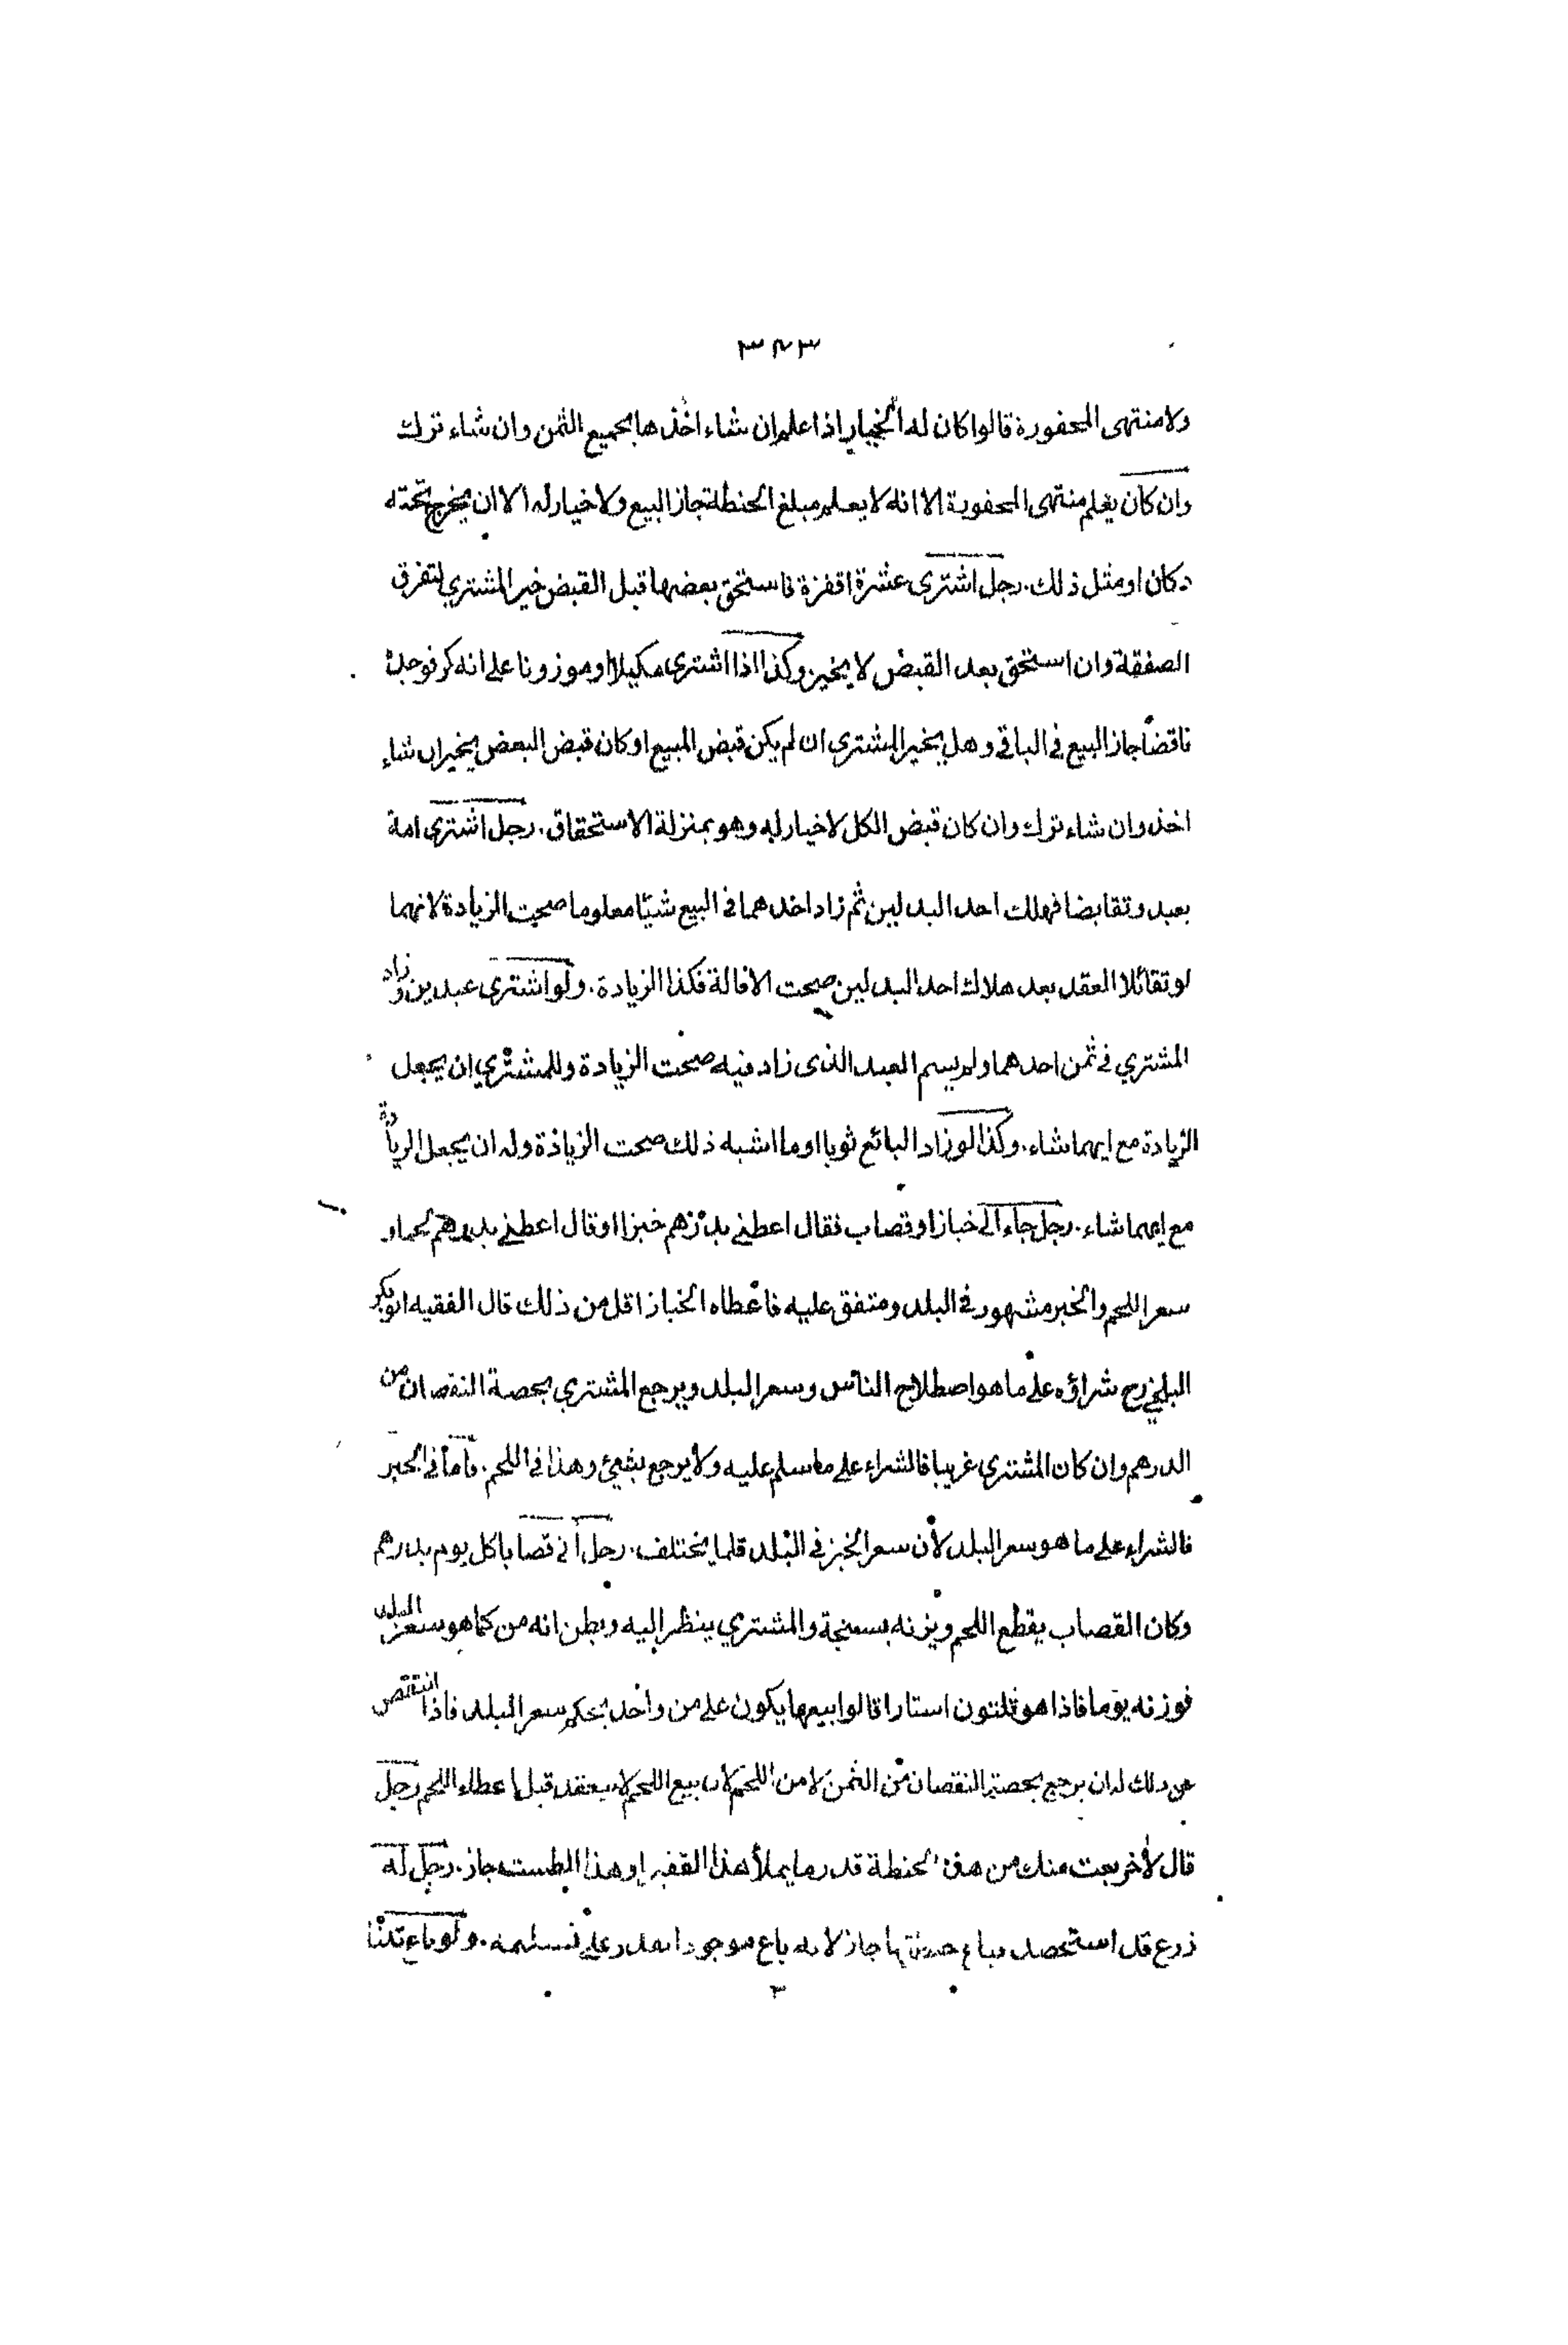 ٣٤٣
ولا منتهى المحفورة قالوا كان له الخيار اذا علم ان شاء اخذها بجميع الثمن وان شاء ترك
وان كان يعلم منتهى المحفورة الا انه لا يعلم مبلغ الحنطة جاز البيع ولا خيار له الا ان يخرج تحته
دكان او مثل ذلك. رجل اشترى عشرة اقفزة فاستحق بعضها قبل القبض خير المشتري لتفرق
الصفقة وان استحق بعد القبض لا يخير وكذا اذا اشترى مكيلا او موزونا على انه كر فوجده
ناقصا جاز البيع في الباقي وهل يخير المشترى ان لم يكن قبض المبيع او كان قبض البعض يخير ان شاء
اخذ وان شاء ترك وان كان قبض الكل لا خيار له وهو بمنزلة الاستحقاق. رجل اشترى امة
بعبد وتقابضا فهلك احد البدلين ثم زاد احدهما في البيع شيئا معلوما صحت الزيادة لانهما
لو تقائلا العقد بعد هلاك احد البدلين صحت الاقالة فكذا الزيادة. ولو اشترى عبدين وزاد
المشتري في ثمن احدهما ولم يسم العبد الذى زاد فيه صحت الزيادة وللمشتري ان يجعل
الزيادة مع ايهما شاء. وكذا لو زاد البائع ثوبا او ما اشبه ذلك صحت الزيادة وله ان يجعل الزيادة
مع ايهما شاء. رجل جاء الى خباز او قصاب فقال اعطني بدرهم خبزا او قال اعطني بدرهم لحما و
سعر اللحم والخبز مشهور في البلد ومتفق عليه فاعطاه الخباز اقل من ذلك قال الفقيه ابو بكر
البلخي رح شراؤه على ما هو اصطلاح الناس وسعر البلد ويرجع المشتري بحصة النقصان من
الدرهم وان كان المشترى غريبا فالشراء على ما سلم عليه ولا يرجع بشيئ وهذا في اللحم. وأما في الخبز
فالشراء على ما هو سعر البلد لأن سعر الخبز في البلد قلما يختلف. رجل أتى قصابا كل يوم بدرهم
وكان القصاب يقطع اللحم ويزنه بسنجة والمشتري ينظر اليه ويظن انه من كما هو سعر البلد
فوزنه يوما فاذا هو ثلثون استارا قالوا بيعها يكون على من واحد بحكم سعر البلد فاذا انتقص
عن ذلك له ان يرجع بحصة النقصان من الثمن لا من اللحم لان بيع اللحم لا ينعقد قبل اعطاء اللحم رجل
قال لأخر بعت منك من هذه الحنطة قدر ما يملأ هذا القفيز او هذا الطست جاز. رجل له
زرع قد استحصد فباع حنطتها جاز لانه باع موجودا يقدر على تسليمه. ولو باع تبنها
٣